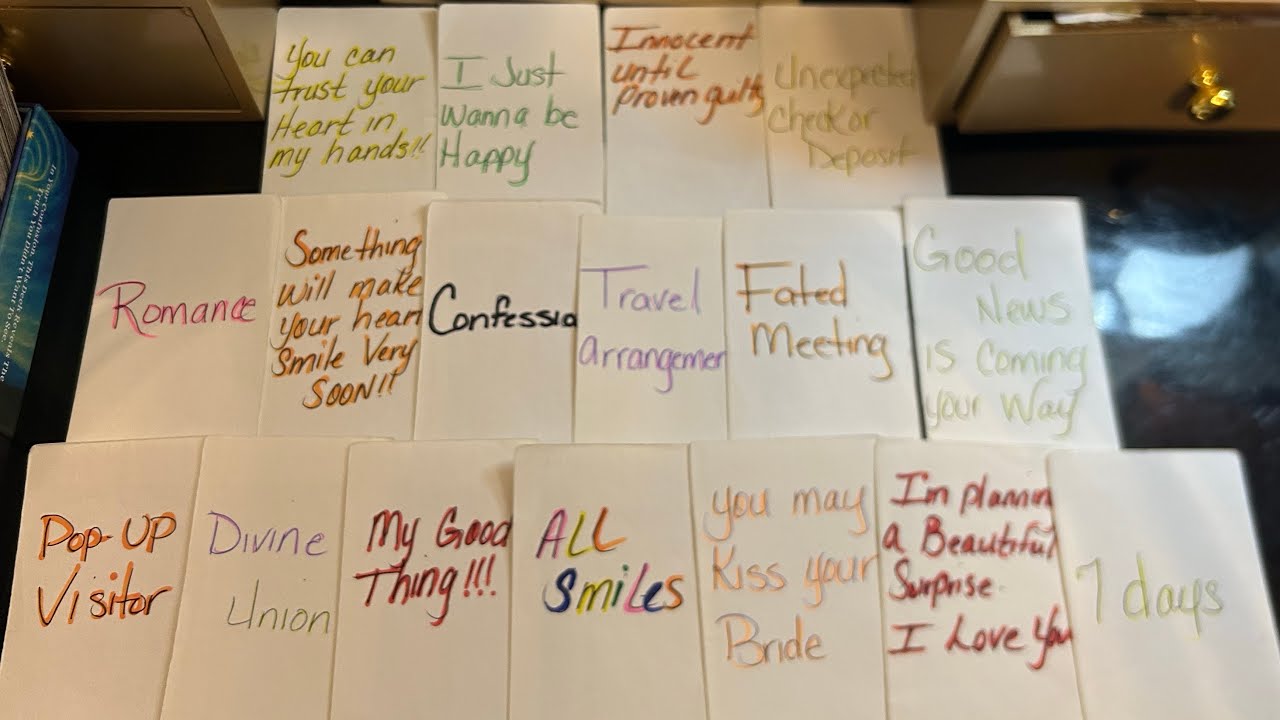 You can
trust your
Heart in
my hands!!
I Just
Wanna be
Happy
Innocent
until
Proven guilty
Unexpected
Check or
Deposit
Romance
Something
will make
your heart
Smile Very
SOON!!
Confessio
Travel
arrangemen
Fated
Meeting
Good
News
is Coming
your Way
Pop-UP
Visitor
Divine
Union
My Good
Thing!!!
ALL
SmiLes
you may
Kiss your
Bride
I'm plannin
a Beautiful
Surprise.
I Love You
7 days
In Your Confusion, This Deck Reveals The
Truth You Didn't Want To See. The